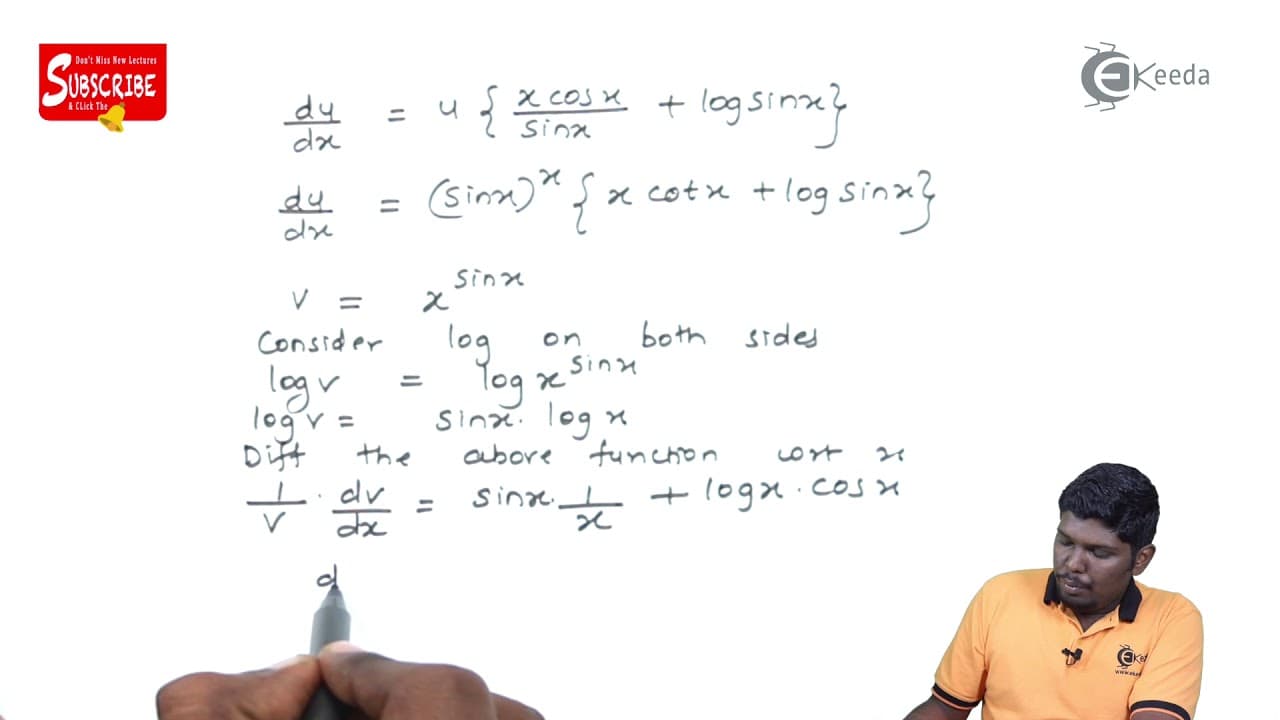 Don't Miss New Lectures
SUBSCRIBE
& Click The
EKeeda
du/dx = u { x cosx / sinx + log sinx }
du/dx = (sinx)^x { x cotx + log sinx }
v = x^sinx
Consider log on both sides
log v = log x^sinx
log v = sinx. log x
Diff the above function wrt x
1/v . dv/dx = sinx. 1/x + logx . cosx
d